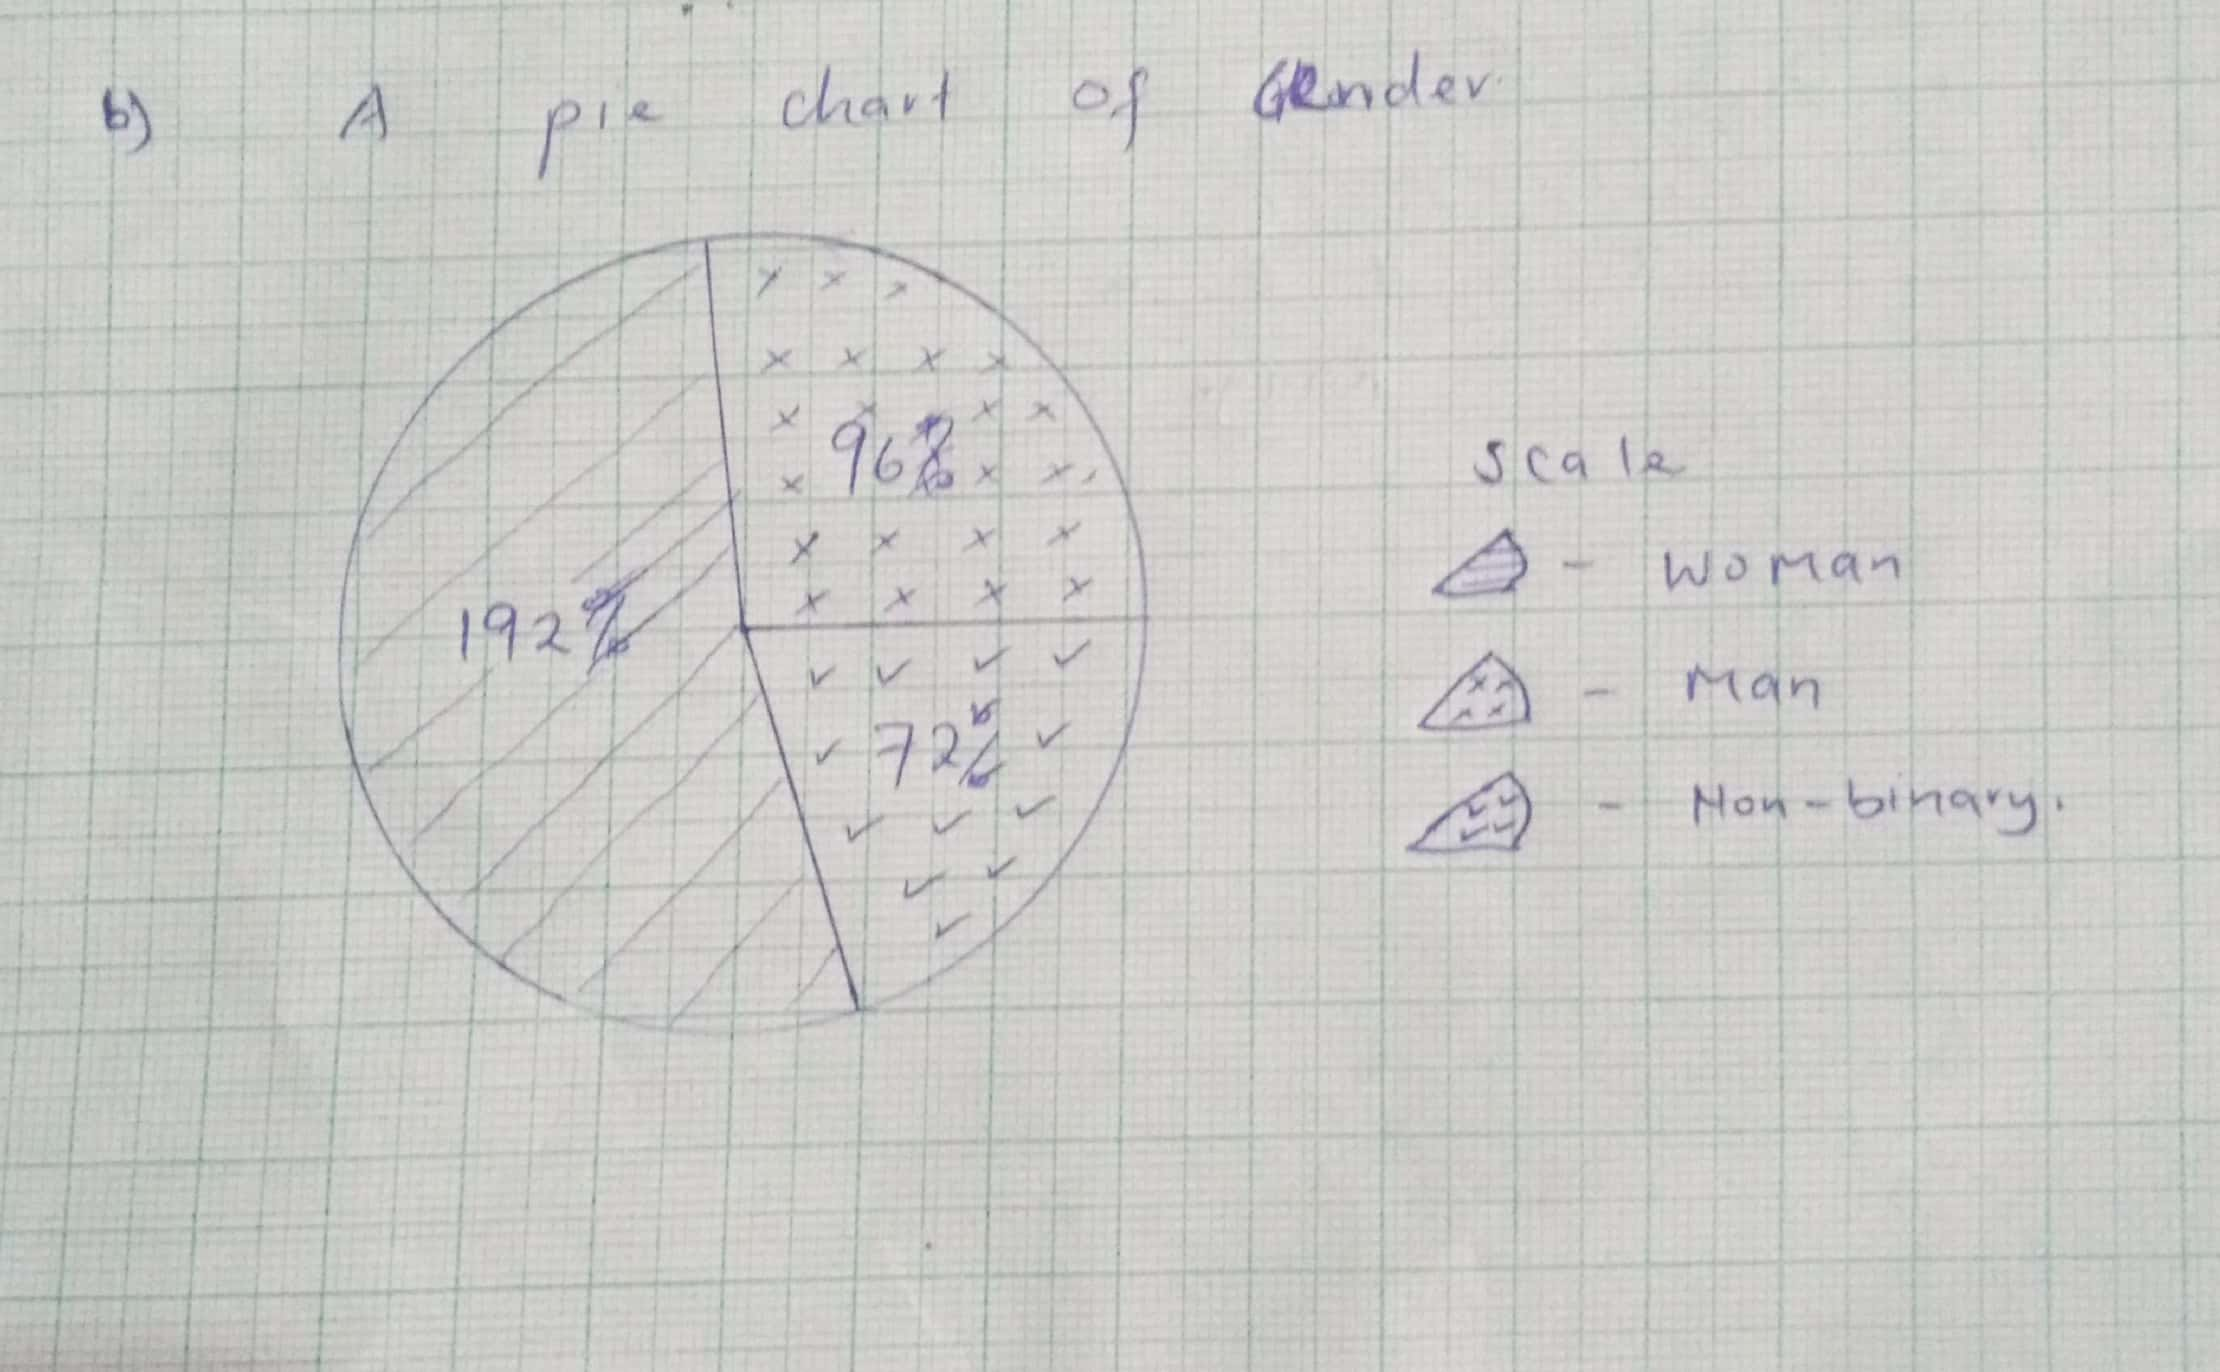 b) A pie chart of Gender.
96
192
72
scale
- Woman
- Man
- Non-binary.